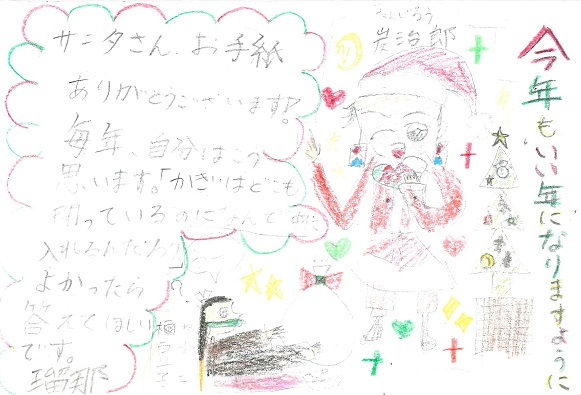 サンタさん、お手紙
ありがとうございます!
毎年、自分はこう
思います。「かぎはどこも
閉っているのになんで
入れるんだろう」?
よかったら
答えてほしい
です。
瑠那
岩治郎
今年もいい年になりますように